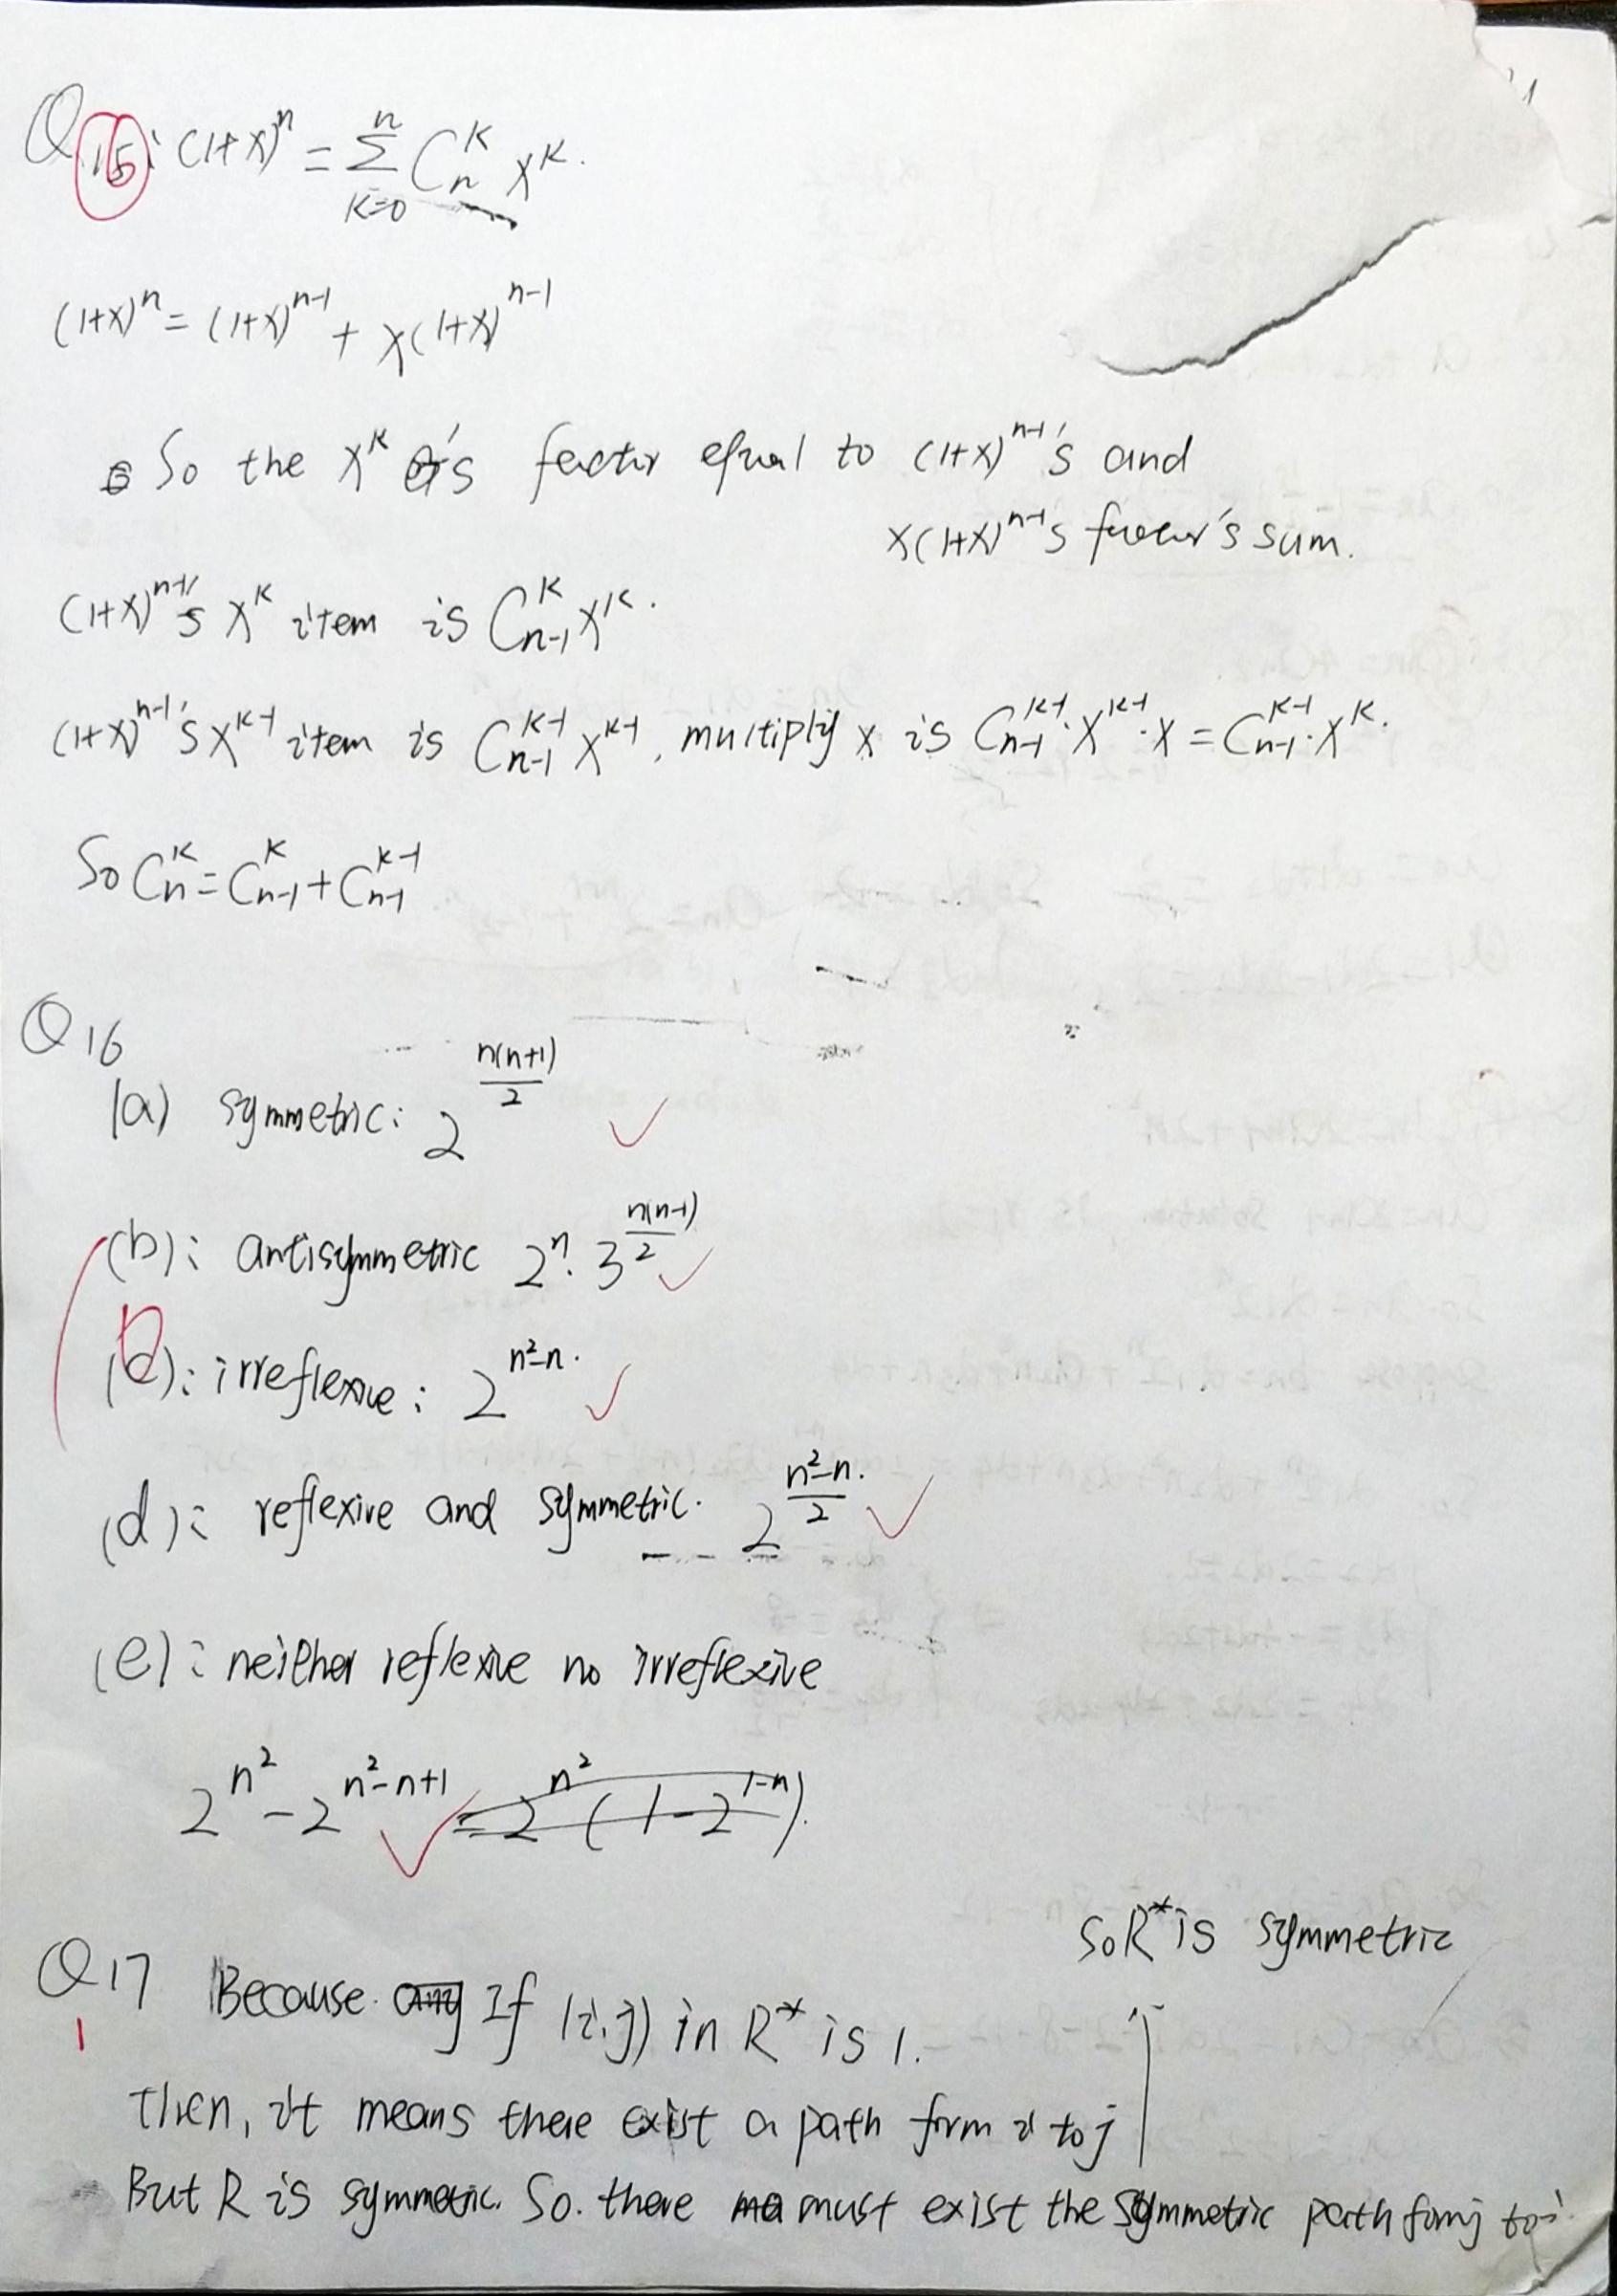 Q15: (1+x)^n = Σ_{k=0}^{n} C_n^k x^k.
(1+x)^n = (1+x)^{n-1} + x(1+x)^{n-1}
So the x^k 's factor equal to (1+x)^{n-1}'s and
x(1+x)^{n-1}'s factor's sum.
(1+x)^{n-1}'s x^k item is C_{n-1}^k x^k.
(1+x)^{n-1}'s x^{k-1} item is C_{n-1}^{k-1} x^{k-1}, multiply x is C_{n-1}^{k-1}·x^{k-1}·x = C_{n-1}^{k-1}·x^k.
So C_n^k = C_{n-1}^k + C_{n-1}^{k-1}
Q16
(a) symmetric: 2^{n(n+1)/2} ✓
(b): antisymmetric 2^n · 3^{n(n-1)/2} ✓
(c): irreflexive: 2^{n²-n}. ✓
(d): reflexive and symmetric. 2^{(n²-n)/2}. ✓
(e): neither reflexive no irreflexive
2^{n²} - 2^{n²-n+1} ✓ = 2^{n²}(1-2^{1-n}).
Q17 Because any If (i,j) in R* is 1.
Then, it means there exist a path form i to j
But R is symmetric. So. there must exist the symmetric path form j to i
So R* is symmetric